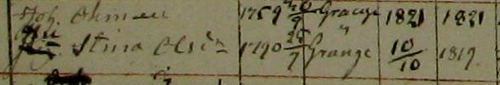 Joh. Ohman 1759 20/9 Grange 1821 1821
Hu Stina Olsdr 1790 25/7 Grange 10/10 1819